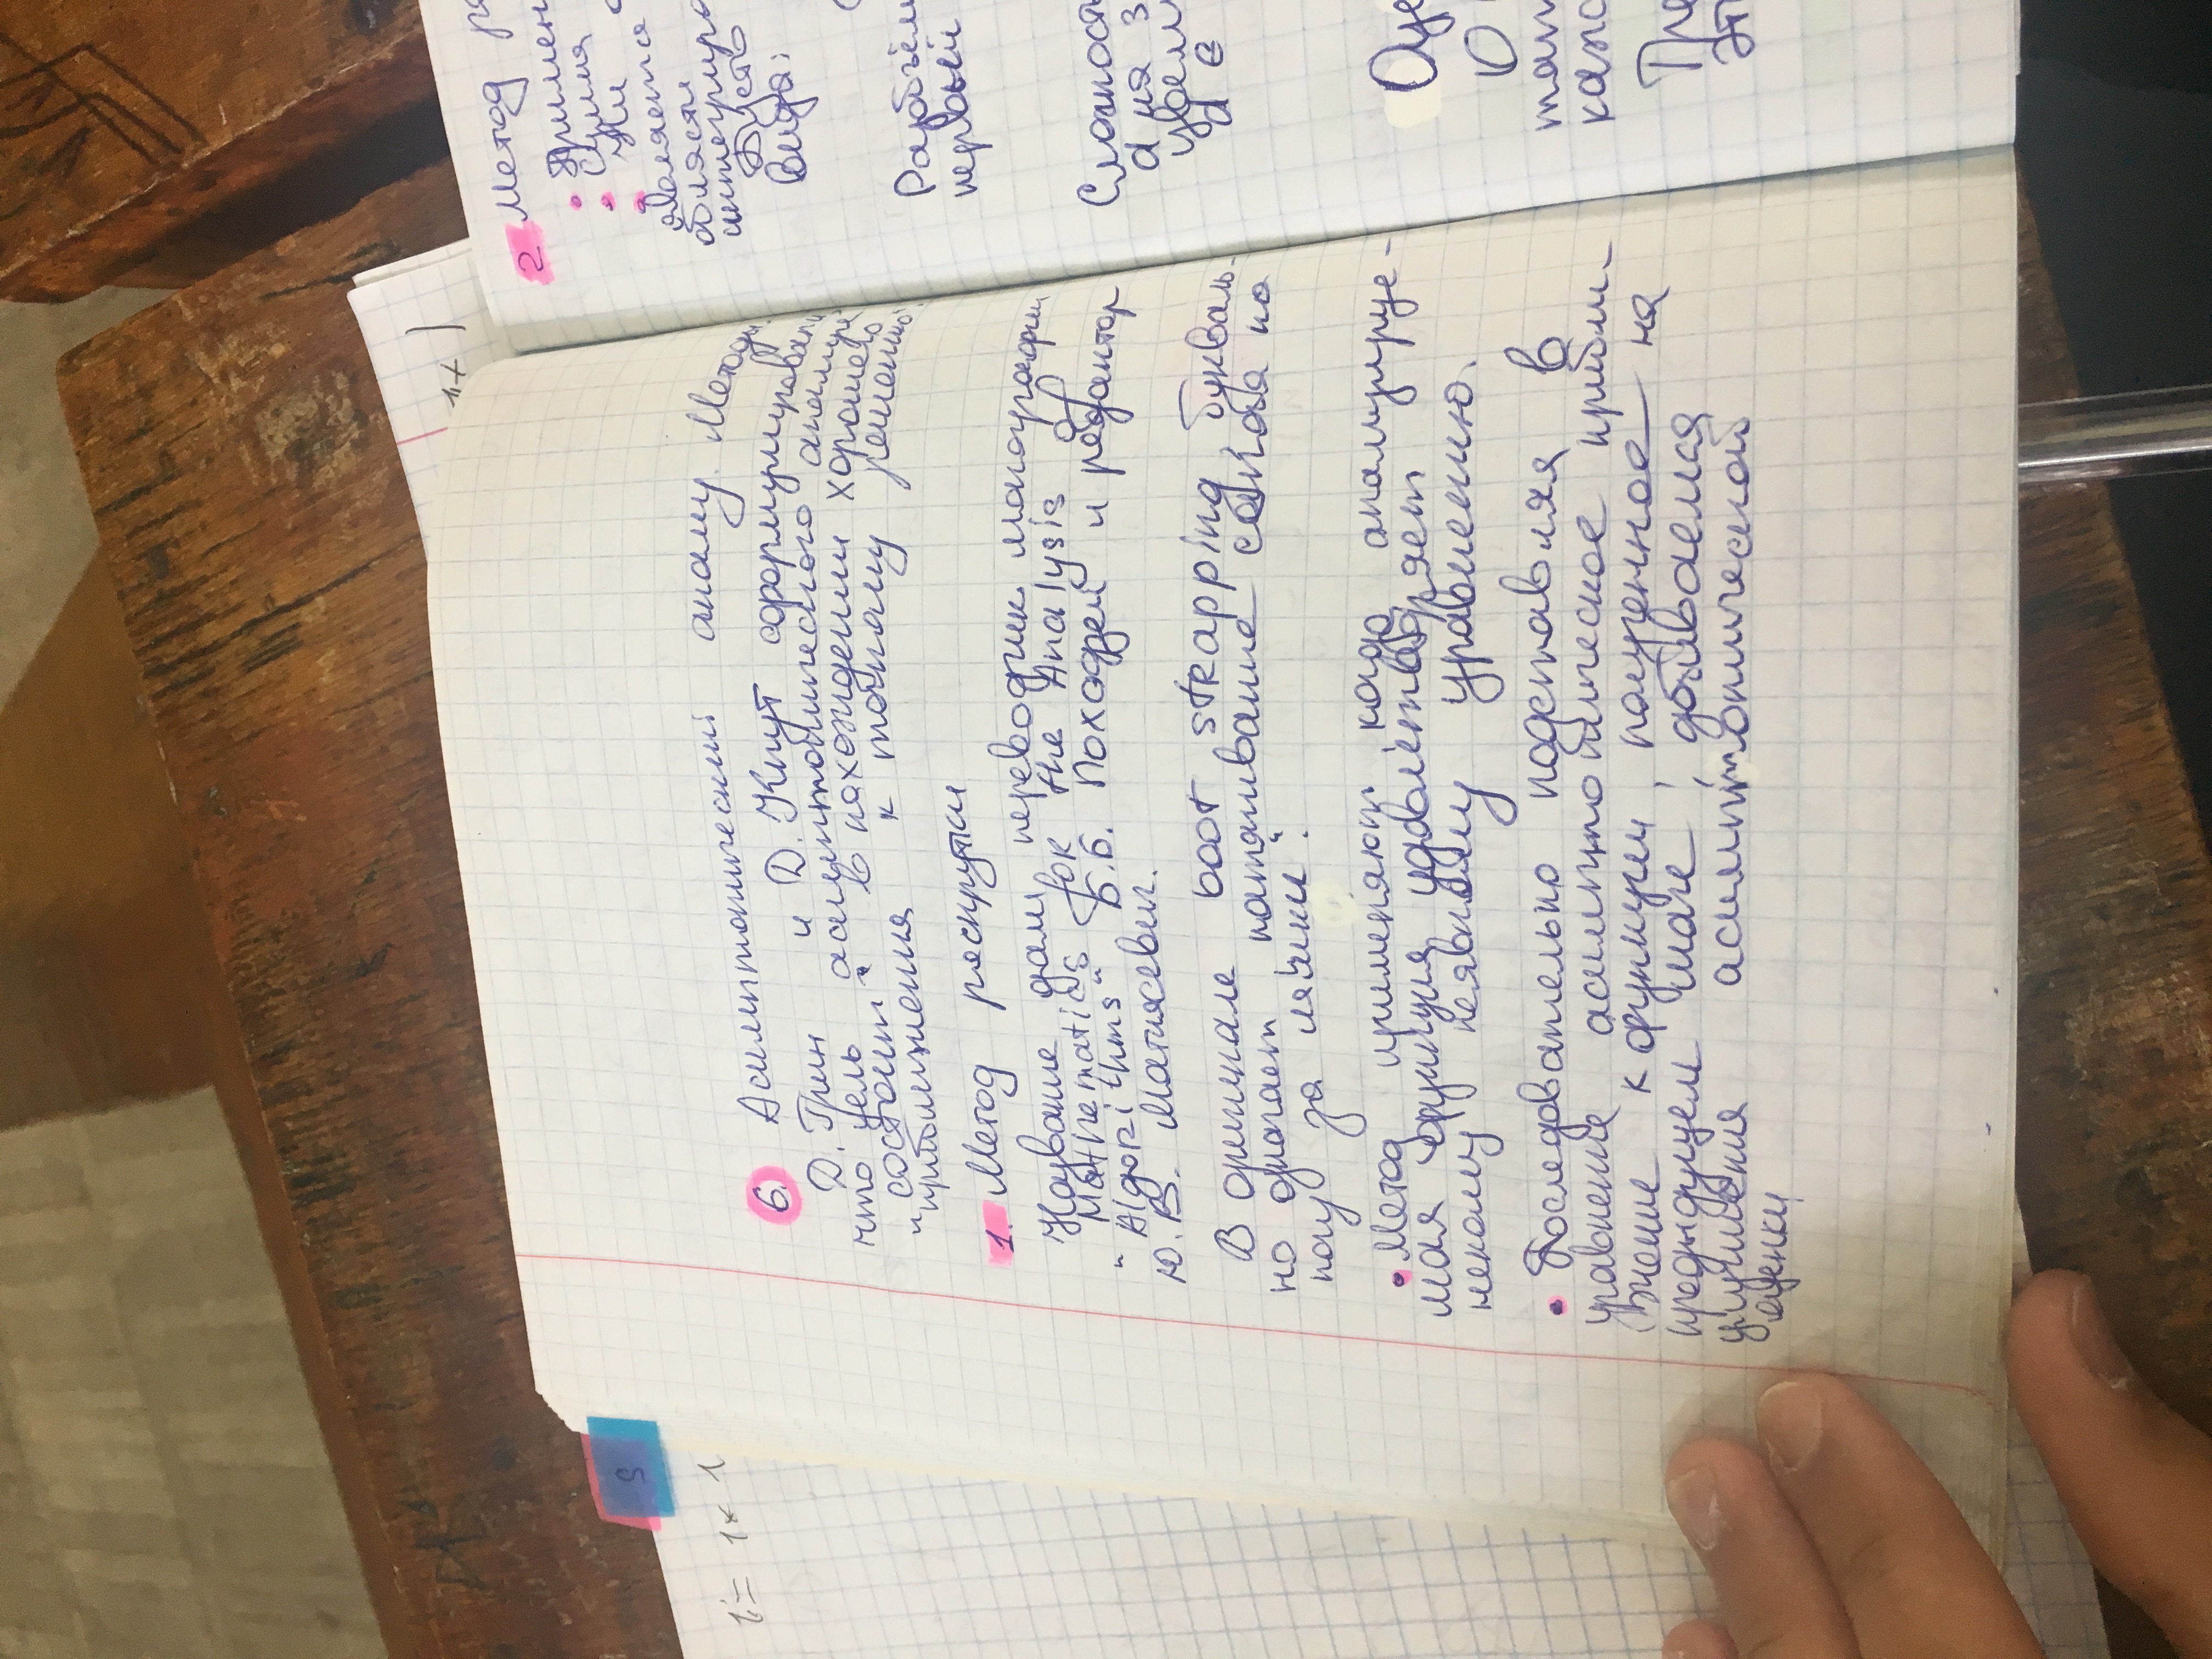 i = 1x1
S
6. Асимптотический анализ. Методы.
Д. Грин и Д. Кнут сформулировали,
что цель асимптотического анализа
"состоит в нахождении хорошего
"приближения к точному решению".
1. Метод раскрутки
Название дали переводчик монографии
Mathematics for the Analysis of
"Algorithms" Б.Б. Походзей и редактор
Ю.В. Матиясевич.
В оригинале boot strapping, букваль-
но означает "натягивание сапога на
ногу за лямки".
• Метод применяют, когда анализируе-
мая функция удовлетворяет
некому неявному уравнению.
• Последовательно подставляя в
уравнение асимптотическое прибли-
жение к функции, полученное на
предыдущем шаге, добиваемся
улучшения асимптотической
оценки,
2 Метод
• Примен
• Сумма
• Ни
является
области
интегриро
Пусть
вида:
Разобьём
первый
Сложность
d на 3
увели
d ∈
Оце
O
тат
каж
Пре
эт